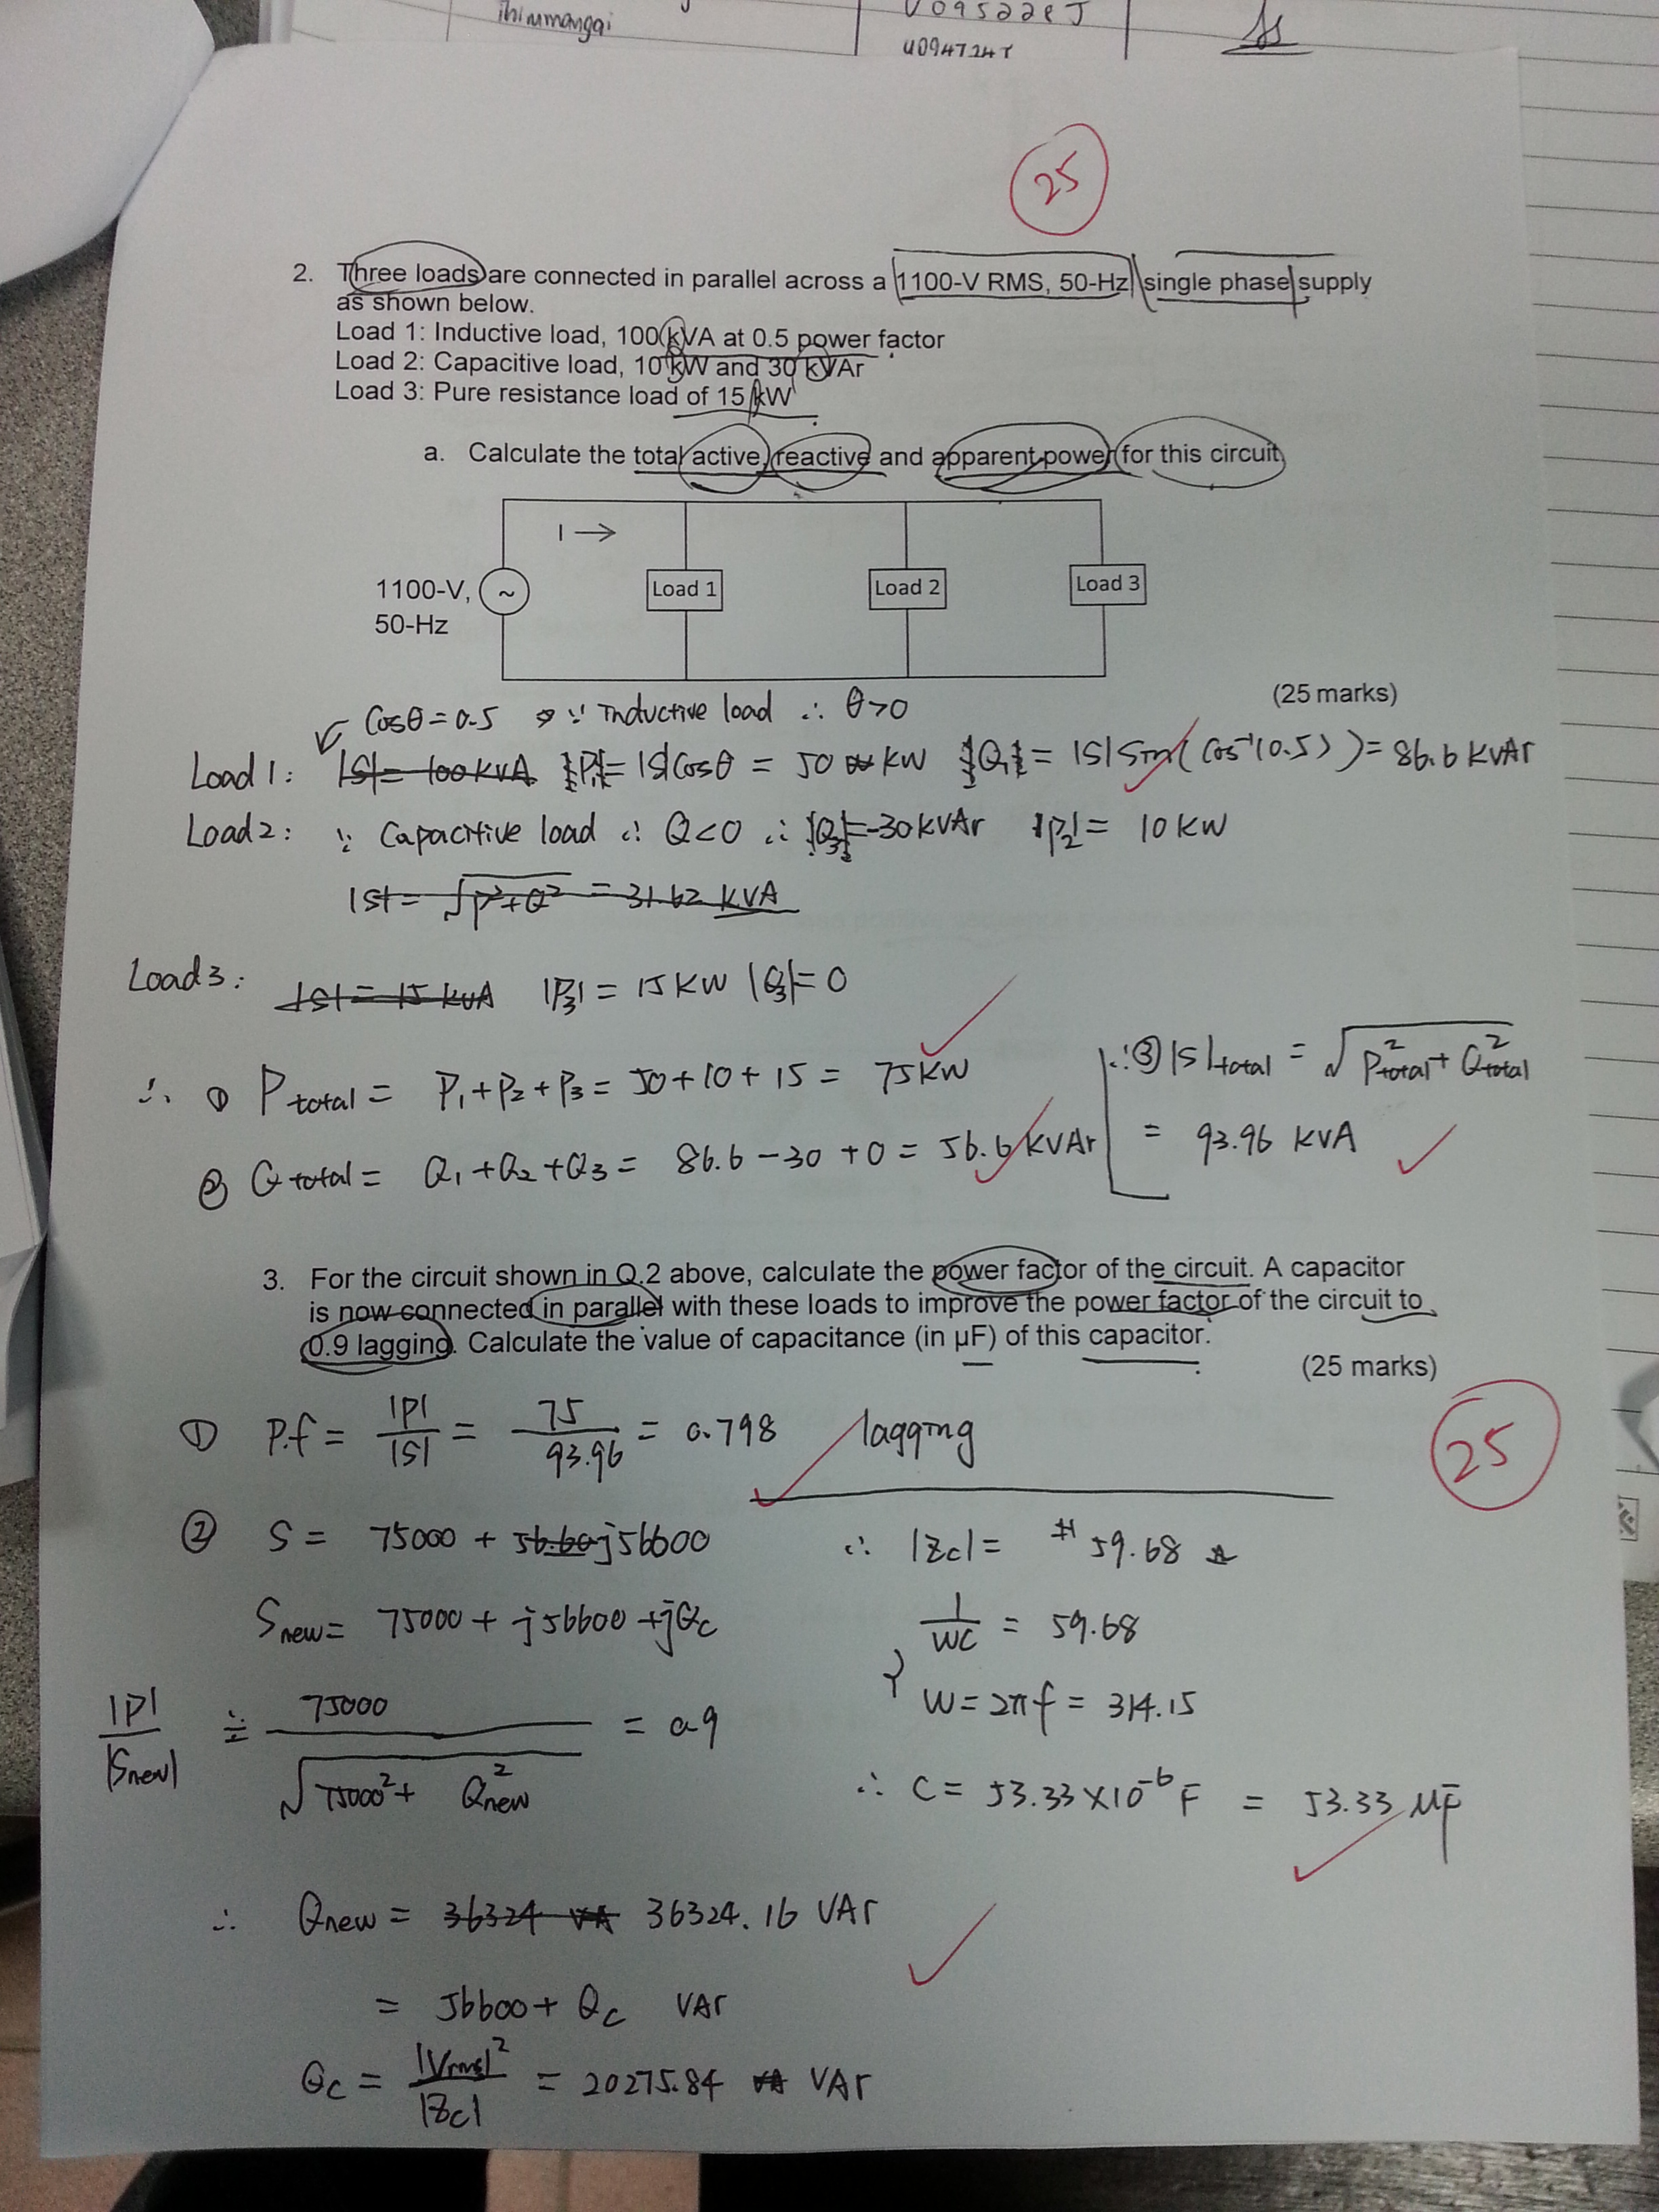 ihinmangai
U095222J
U094724Y
25
2. Three loads are connected in parallel across a 1100-V RMS, 50-Hz single phase supply
as shown below.
Load 1: Inductive load, 100 kVA at 0.5 power factor
Load 2: Capacitive load, 10 kW and 30 kVAr
Load 3: Pure resistance load of 15 kW
a. Calculate the total active, reactive and apparent power for this circuit
I →
1100-V,
50-Hz
~
Load 1
Load 2
Load 3
(25 marks)
Cosθ = 0.5 ∵ Inductive load ∴ θ>0
Load 1: |S| = 100 KVA |P1| = |S|Cosθ = 50 KW |Q1| = |S| Sin(Cos⁻¹(0.5)) = 86.6 KVAr
Load 2: ∵ Capacitive load ∴ Q<0 ∴ |Q2| = -30 KVAr |P2| = 10 KW
|S| = √P²+Q² = 31.62 KVA
Load 3: |S| = 15 KVA |P3| = 15 KW |Q3| = 0
∴ ① P total = P1 + P2 + P3 = 50 + 10 + 15 = 75 KW
② Q total = Q1 + Q2 + Q3 = 86.6 - 30 + 0 = 56.6 KVAr
∴ ③ |S| total = √P²total + Q²total
= 93.96 KVA
3. For the circuit shown in Q.2 above, calculate the power factor of the circuit. A capacitor
is now connected in parallel with these loads to improve the power factor of the circuit to
0.9 lagging. Calculate the value of capacitance (in µF) of this capacitor.
(25 marks)
25
① P.f = |P| / |S| = 75 / 93.96 = 0.798 lagging
② S = 75000 + 56.60 j56600
S new = 75000 + j56600 + jQc
|P| / |S new| = 75000 / √75000² + Q²new = 0.9
∴ Q new = 36324 VA 36324.16 VAr
= 56600 + Qc VAr
Qc = |Vrms|² / |Zc| = 20275.84 VAr
∴ |Zc| = 59.68
1 / WC = 59.68
W = 2πf = 314.15
∴ C = 53.33 × 10⁻⁶ F = 53.33 µF